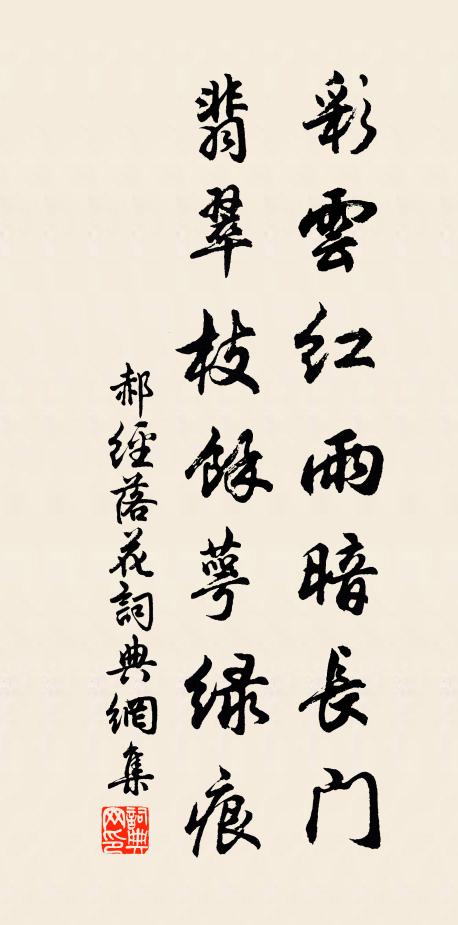 彩雲紅雨暗長门
翡翠枝餘萼緑痕
郝經落花詞典網集
詞典网印